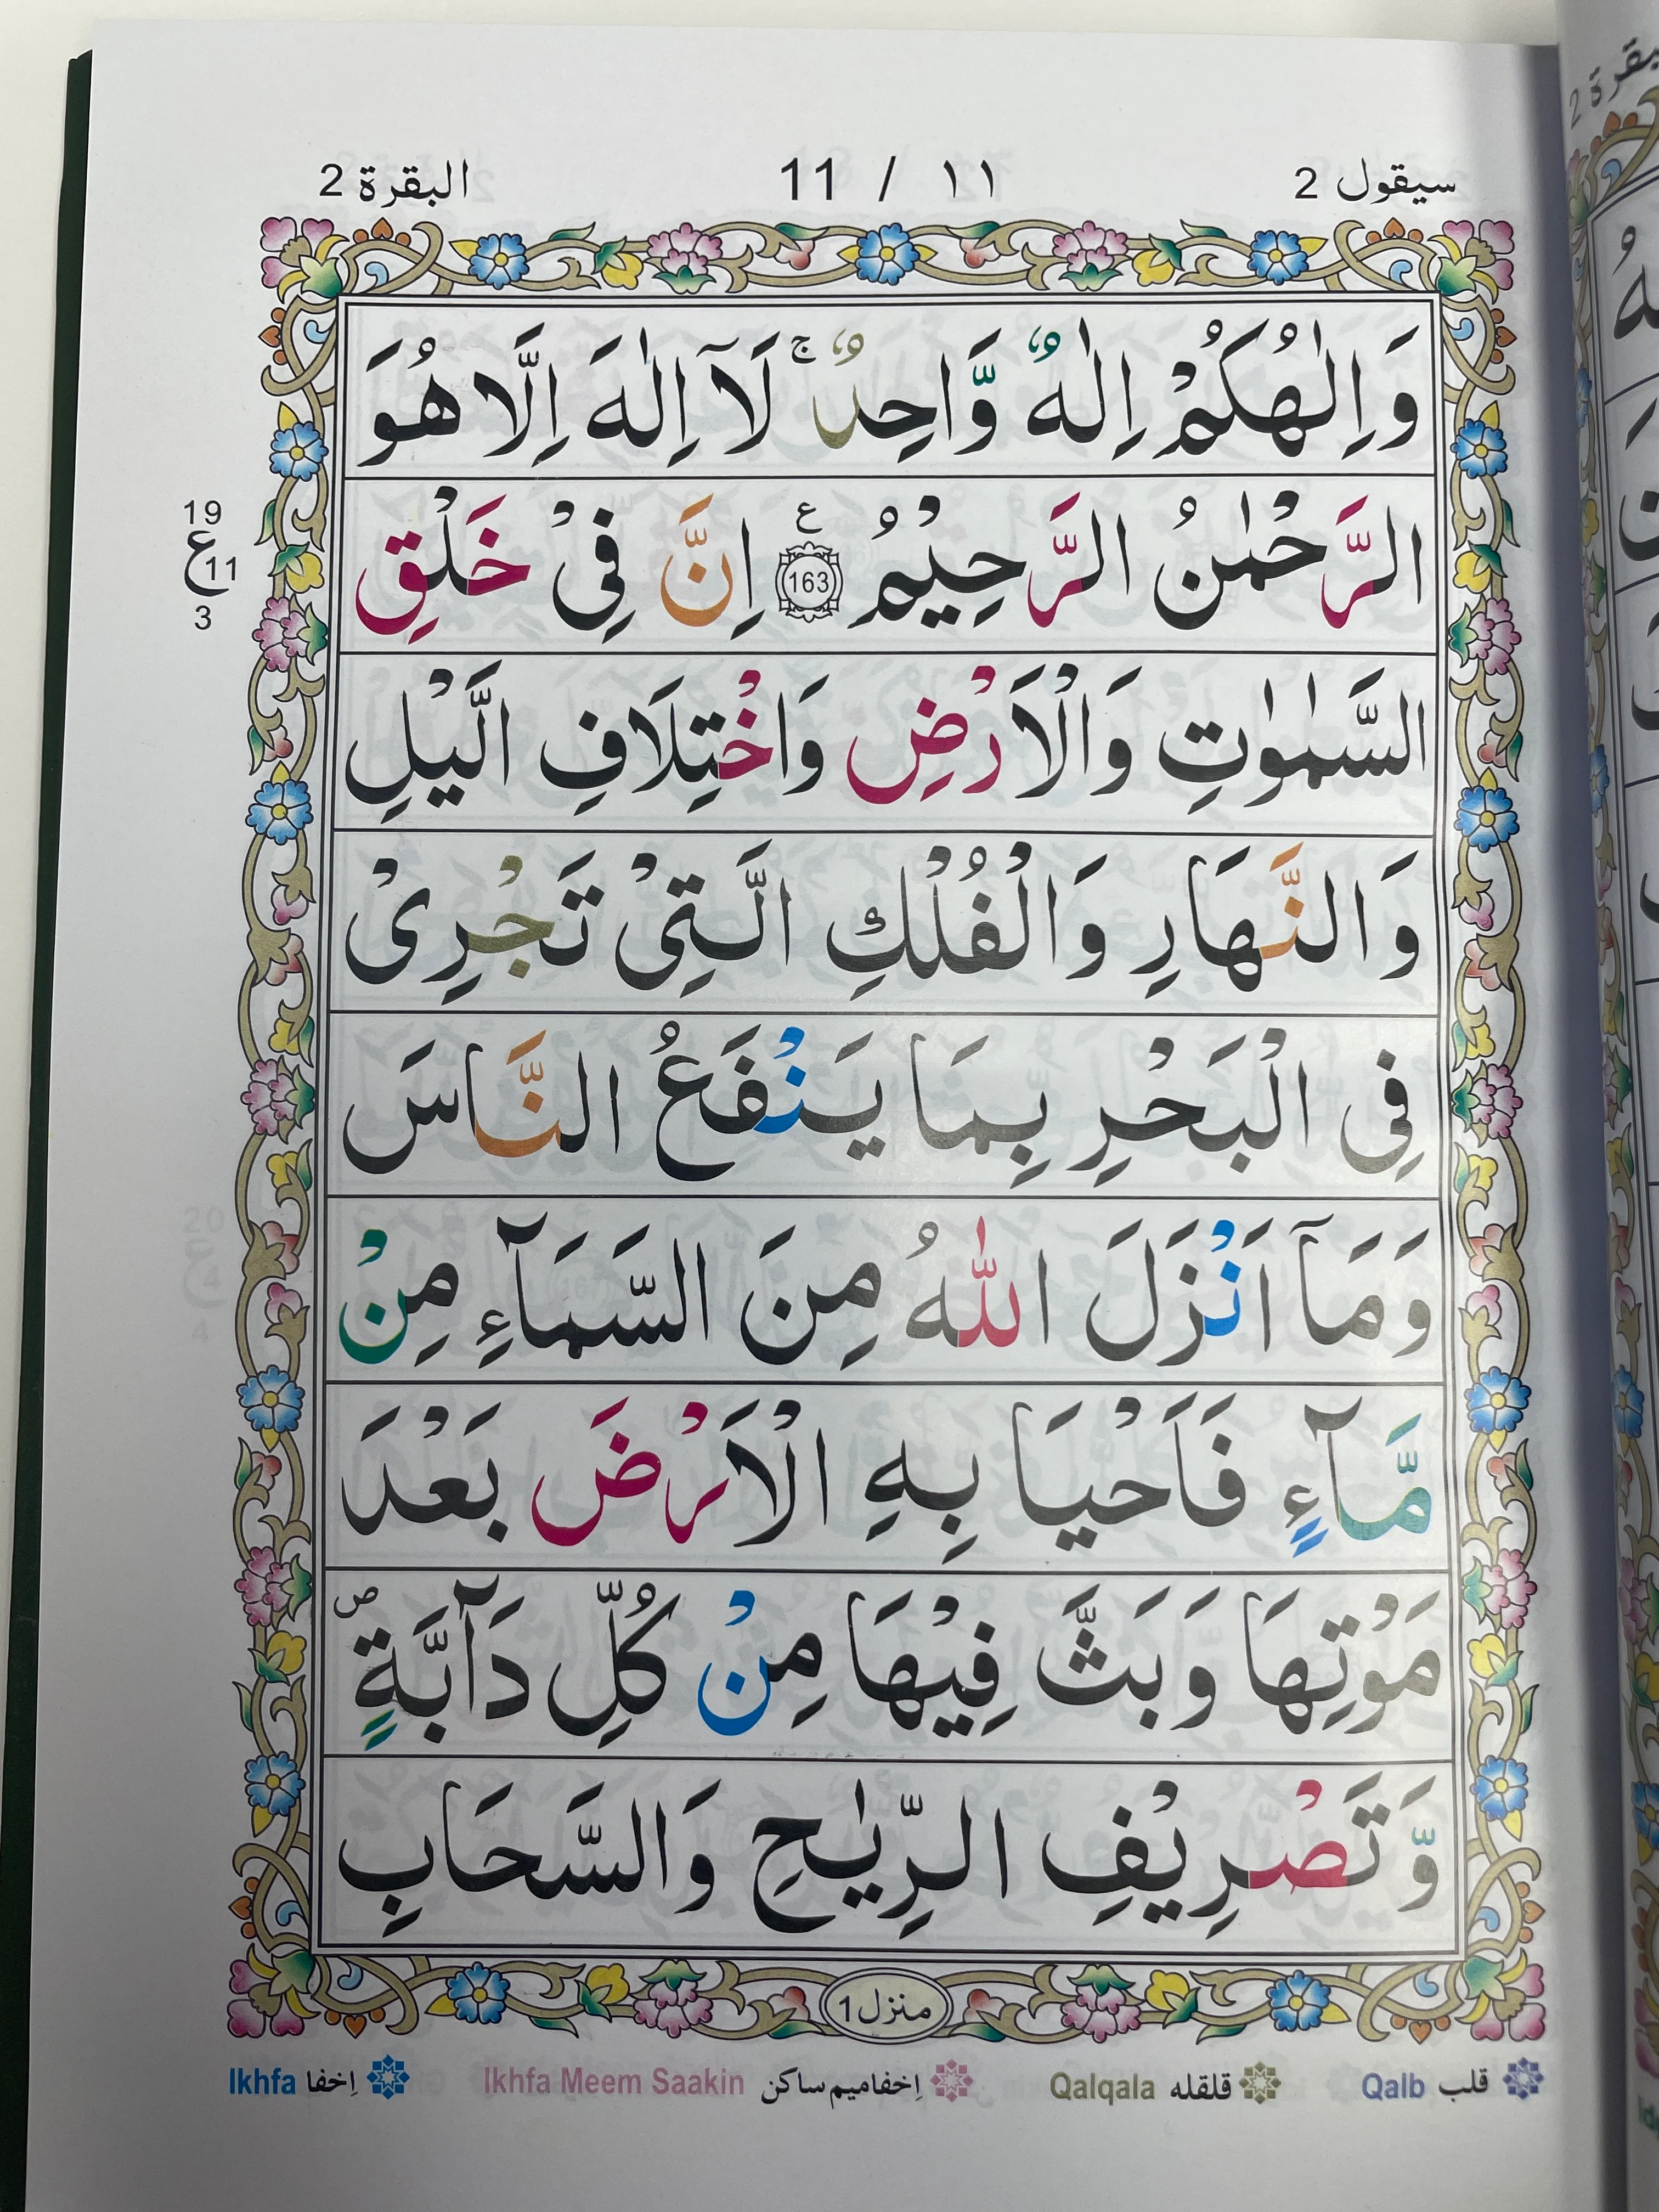 سيقول 2
11 / ١١
البقرة 2
وَاِلٰهُكُمْ اِلٰهٌ وَّاحِدٌ ۚ لَآ اِلٰهَ اِلَّا هُوَ
الرَّحْمٰنُ الرَّحِيْمُ ع 163 اِنَّ فِيْ خَلْقِ
19
ع 11
3
السَّمٰوٰتِ وَالْاَرْضِ وَاخْتِلَافِ الَّيْلِ
وَالنَّهَارِ وَالْفُلْكِ الَّتِيْ تَجْرِيْ
فِي الْبَحْرِ بِمَا يَنْفَعُ النَّاسَ
وَمَآ اَنْزَلَ اللّٰهُ مِنَ السَّمَآءِ مِنْ
مَّآءٍ فَاَحْيَا بِهِ الْاَرْضَ بَعْدَ
مَوْتِهَا وَبَثَّ فِيْهَا مِنْ كُلِّ دَآبَّةٍ ص
وَّتَصْرِيْفِ الرِّيٰحِ وَالسَّحَابِ
منزل 1
قلب Qalb
قلقله Qalqala
اِخفامیم ساکن Ikhfa Meem Saakin
اِخفا Ikhfa